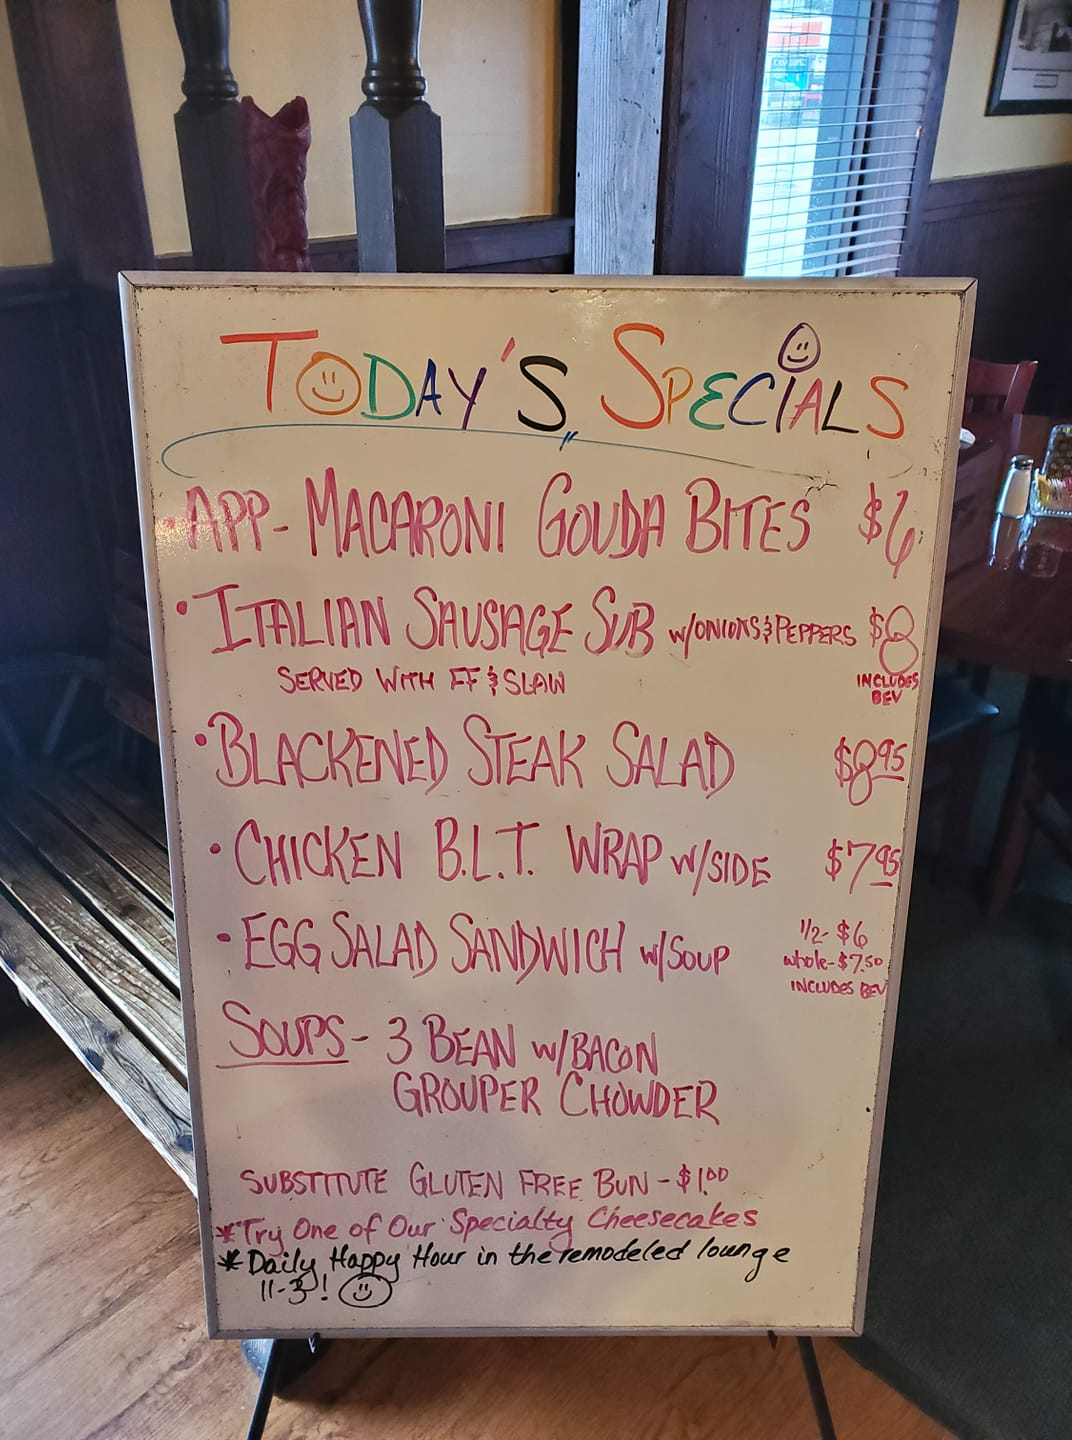 TODAY'S SPECIALS
• APP- MACARONI GOUDA BITES $6
• ITALIAN SAUSAGE SUB w/ONIONS & PEPPERS $8
SERVED WITH FF & SLAW INCLUDES BEV
• BLACKENED STEAK SALAD $8.95
• CHICKEN B.L.T. WRAP w/SIDE $7.95
• EGG SALAD SANDWICH w/SOUP 1/2- $6
whole-$7.50
INCLUDES BEV
SOUPS- 3 BEAN w/BACON
GROUPER CHOWDER
SUBSTITUTE GLUTEN FREE BUN - $1.00
*Try One of Our Specialty Cheesecakes
*Daily Happy Hour in the remodeled lounge
11-3!